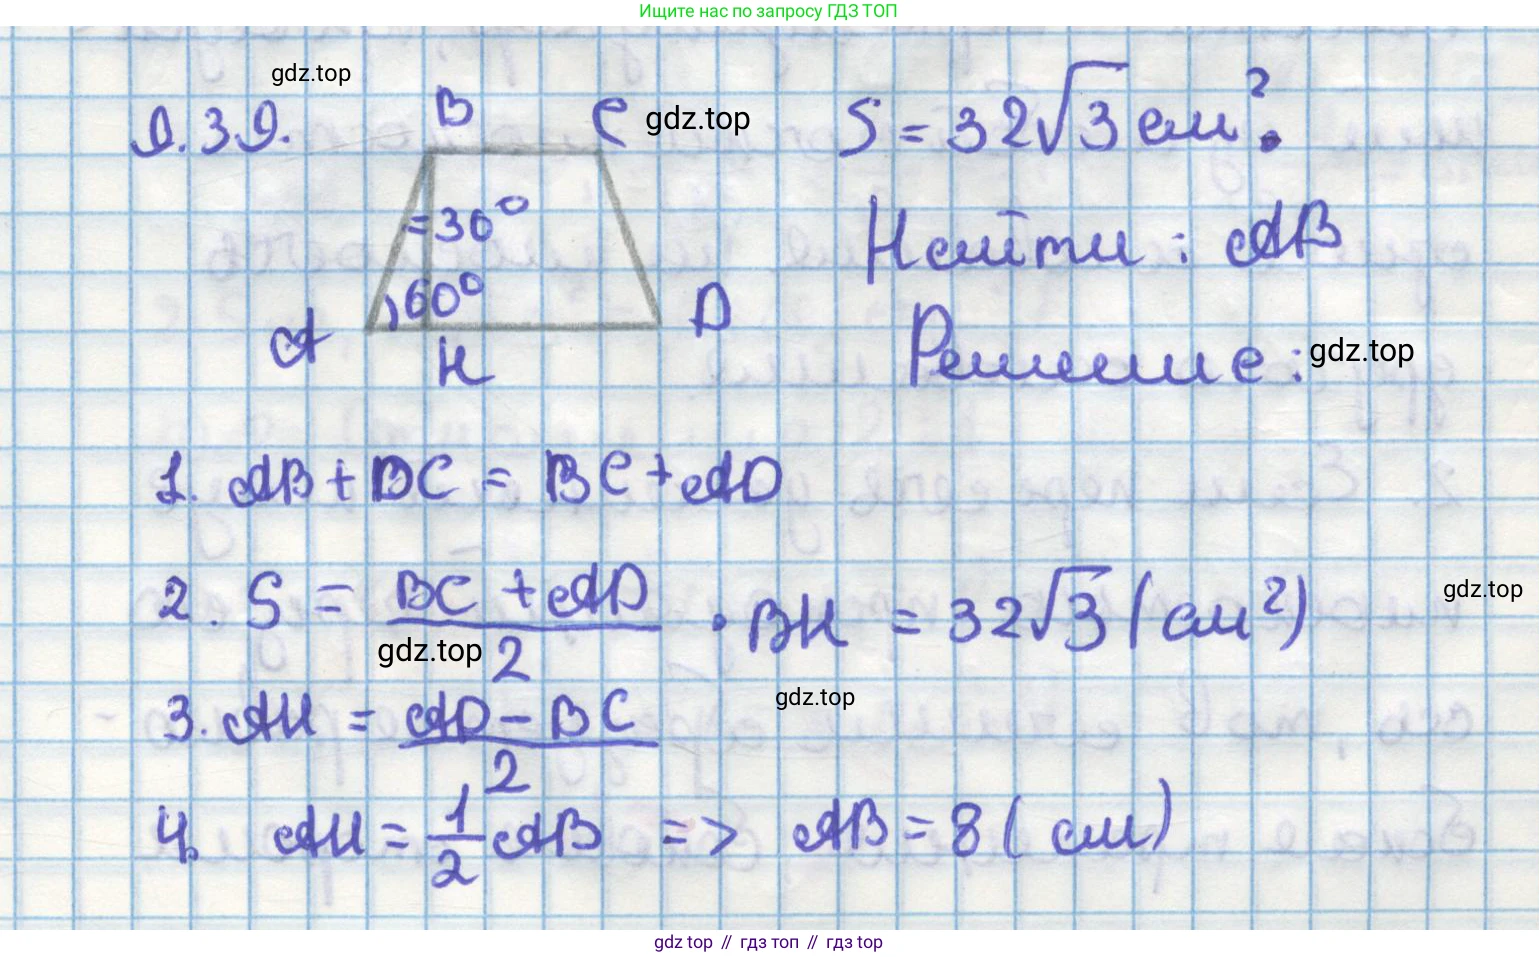 Ищите нас по запросу ГДЗ ТОП
gdz.top
9.39.
B
C
gdz.top
S = 32√3 см².
=30°
Найти: AB
60°
A
H
D
Решение:
gdz.top
1. AB + DC = BC + AD
2. S = (BC + AD)/2 · BH = 32√3 (см²)
gdz.top
gdz.top
3. AH = (AD - BC)/2
gdz.top
4. AH = 1/2 AB => AB = 8 (см)
gdz top // гдз топ // gdz top